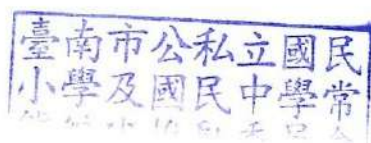 臺南市公私立國民
小學及國民中學常